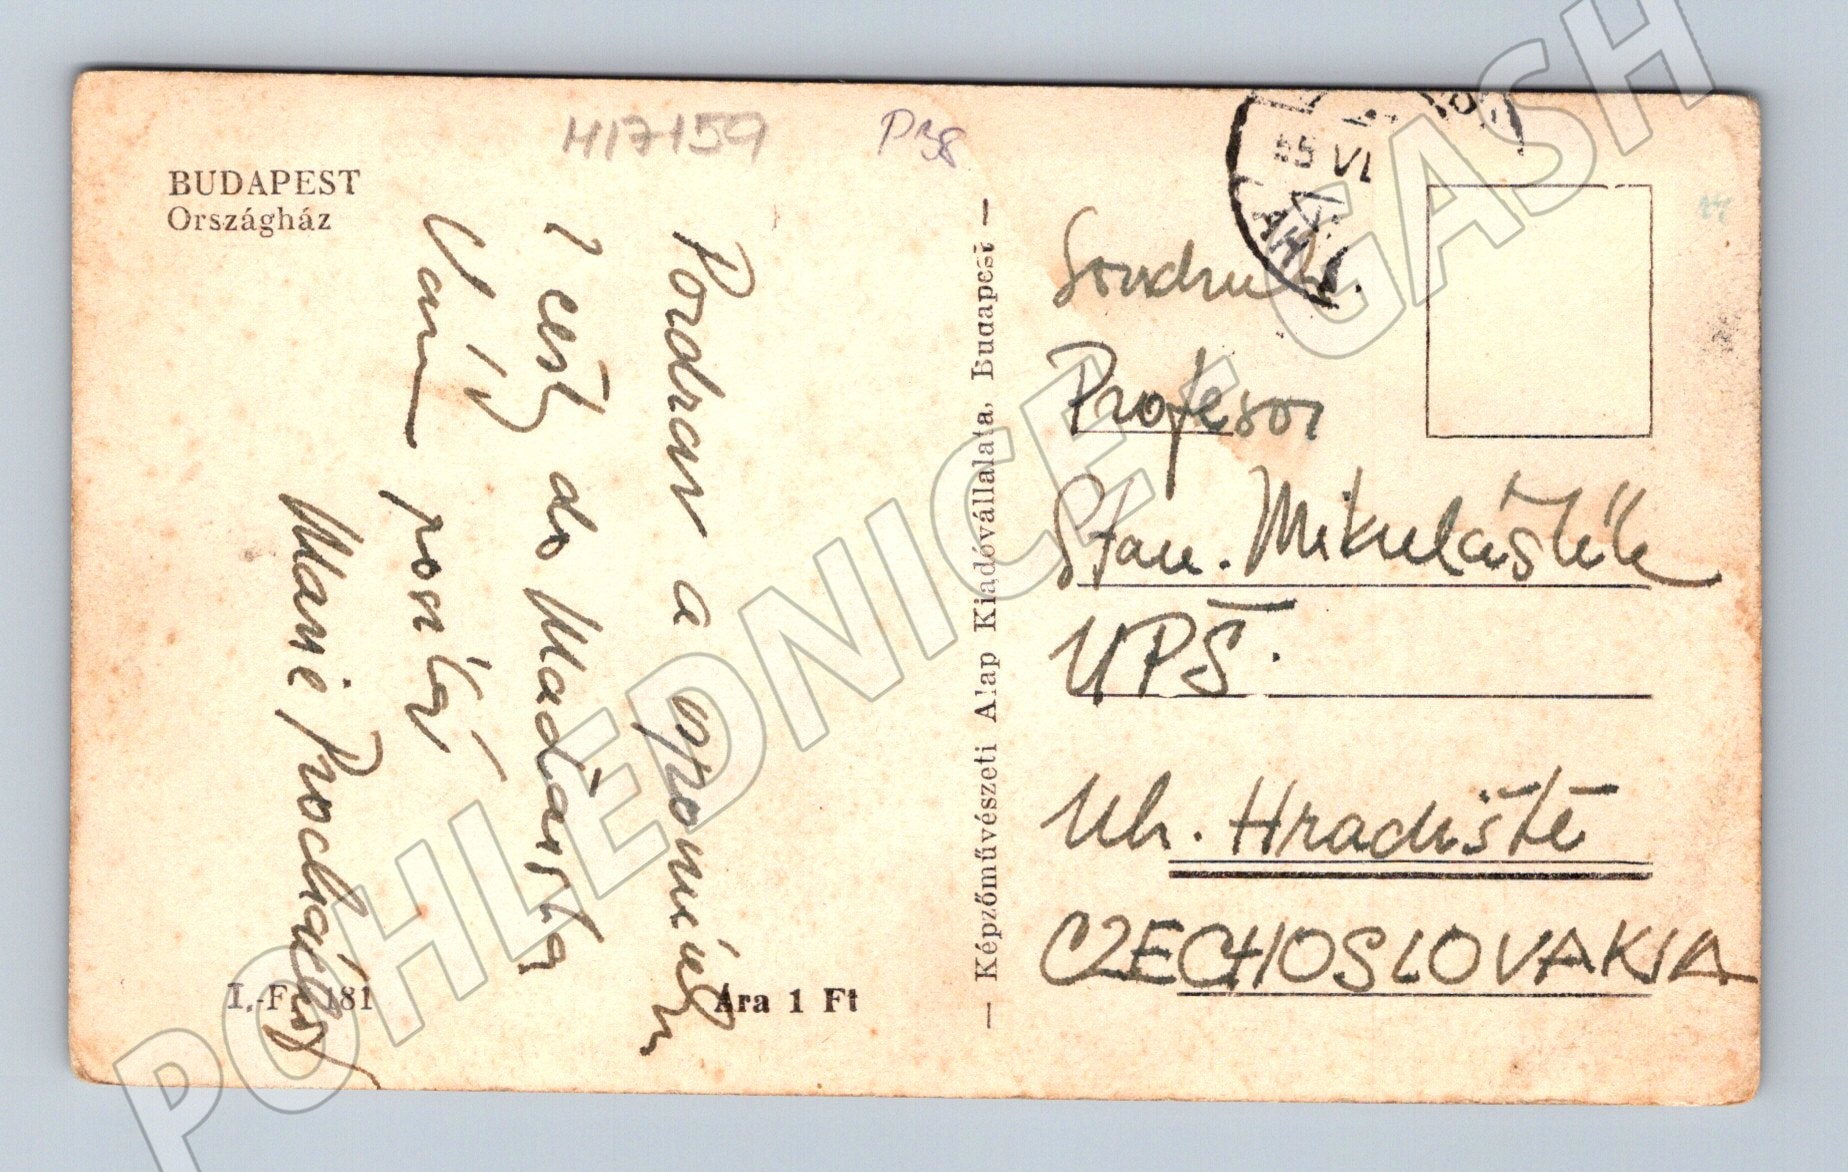 H17159
P38
BUDAPEST
Országház
Pozdrav a vzpomínku
z cesty do Maďarska
Vám posílají
Marie Procházkovy
I.-F. 181
Ára 1 Ft
— Képzőművészeti Alap Kiadóvállalata, Budapest —
55 VI
Soudruh
Profesor
Stan. Mikuláštík
UPŠ.
Uh. Hradiště
CZECHOSLOVAKIA
POHLEDNICE - GASH